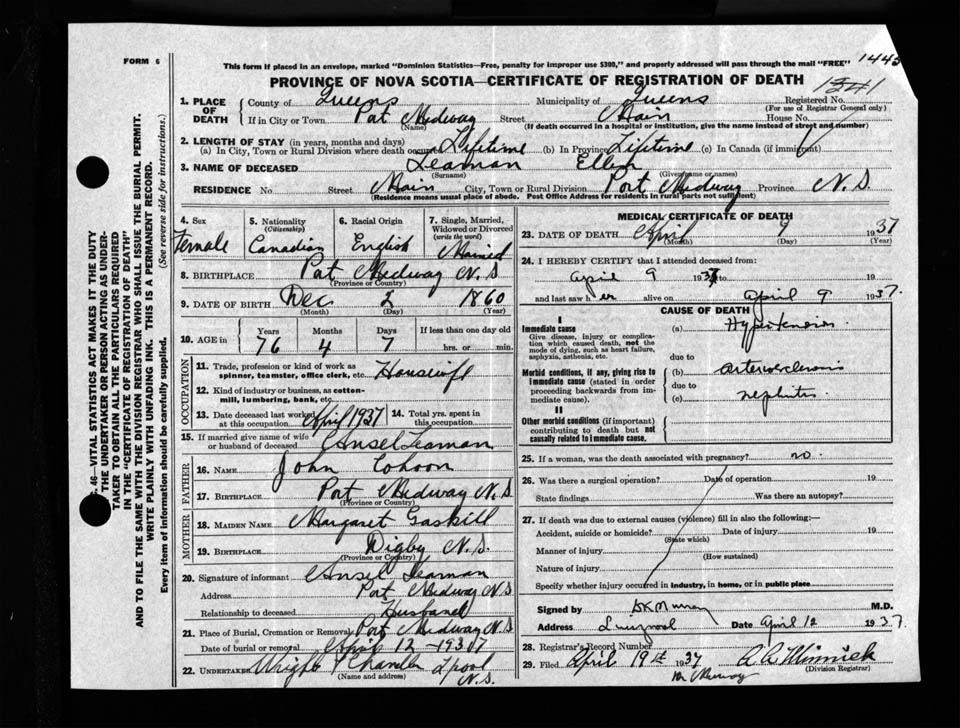 FORM 6
This form if placed in an envelope, marked "Dominion Statistics—Free, penalty for improper use $300," and properly addressed will pass through the mail "FREE"
1443
PROVINCE OF NOVA SCOTIA—CERTIFICATE OF REGISTRATION OF DEATH
1341
1. PLACE OF DEATH
County of Queens Municipality of Queens Registered No.
(For use of Registrar General only)
If in City or Town Port Medway Street Main House No.
(Name) (If death occurred in a hospital or institution, give the name instead of street and number)
2. LENGTH OF STAY (in years, months and days)
(a) In City, Town or Rural Division where death occurred Lifetime (b) In Province Lifetime (c) In Canada (if immigrant)
3. NAME OF DECEASED Leaman Ellen
(Surname) (Given name or names)
RESIDENCE No Street Main City, Town or Rural Division Port Medway Province N.S.
(Residence means usual place of abode. Post Office Address for residents in rural parts not sufficient)
4. Sex Female
5. Nationality (Citizenship) Canadian
6. Racial Origin English
7. Single, Married, Widowed or Divorced (write the word) Married
8. BIRTHPLACE Port Medway N.S
(Province or Country)
9. DATE OF BIRTH Dec 2 1860
(Month) (Day) (Year)
10. AGE in Years Months Days If less than one day old
76 4 7 hrs. or min.
OCCUPATION
11. Trade, profession or kind of work as spinner, teamster, office clerk, etc. Housewife
12. Kind of industry or business, as cotton-mill, lumbering, bank, etc.
13. Date deceased last worked at this occupation April 1937 14. Total yrs. spent in this occupation
15. If married give name of wife or husband of deceased Ansel Leaman
FATHER
16. NAME John Cohoon
17. BIRTHPLACE Port Medway N.S
(Province or Country)
MOTHER
18. MAIDEN NAME Margaret Gaskill
19. BIRTHPLACE Digby N.S.
(Province or Country)
20. Signature of informant Ansel Leaman
Address Port Medway N.S
Relationship to deceased Husband
21. Place of Burial, Cremation or Removal Port Medway N.S
Date of burial or removal April 12 - 1937
22. UNDERTAKER Wright Chandler L'pool N.S.
(Name and address)
MEDICAL CERTIFICATE OF DEATH
23. DATE OF DEATH April 9 1937
(Month) (Day) (Year)
24. I HEREBY CERTIFY that I attended deceased from:
April 9 1937 to
and last saw her alive on April 9 1937.
CAUSE OF DEATH
I
Immediate cause
Give disease, injury or complication which caused death, not the mode of dying, such as heart failure, asphyxia, asthenia, etc.
(a) Hypertension.
due to
Morbid conditions, if any, giving rise to immediate cause (stated in order proceeding backwards from immediate cause).
(b) arteriosclerosis
due to
(c) nephritis
II
Other morbid conditions (if important) contributing to death but not causally related to immediate cause.
25. If a woman, was the death associated with pregnancy? no.
26. Was there a surgical operation? Date of operation 19
State findings Was there an autopsy?
27. If death was due to external causes (violence) fill in also the following:—
Accident, suicide or homicide? Date of injury 19
(State which)
Manner of injury
(How sustained)
Nature of injury
Specify whether injury occurred in industry, in home, or in public place
Signed by D K Murray M.D.
Address Liverpool Date April 12 1937.
28. Registrar's Record Number
29. Filed April 19th 1937 A A Minnick
(Division Registrar)
C. 46—VITAL STATISTICS ACT MAKES IT THE DUTY
THE UNDERTAKER OR PERSON ACTING AS UNDER-
TAKER TO OBTAIN ALL THE PARTICULARS REQUIRED
IN THE "CERTIFICATE OF REGISTRATION OF DEATH"
AND TO FILE THE SAME WITH THE DIVISION REGISTRAR WHO SHALL ISSUE THE BURIAL PERMIT.
WRITE PLAINLY WITH UNFADING INK. THIS IS A PERMANENT RECORD.
Every item of information should be carefully supplied. (See reverse side for instructions.)